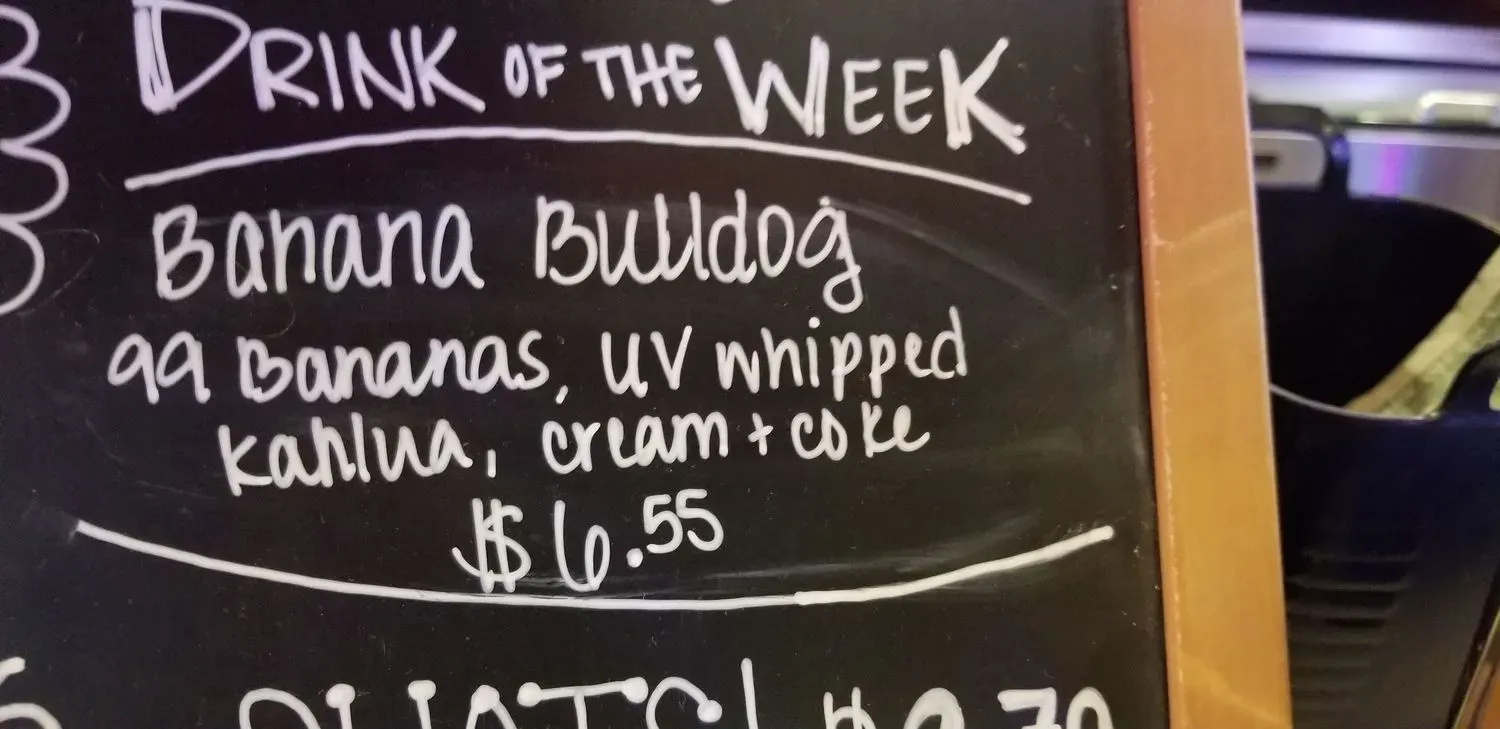 DRINK OF THE WEEK
Banana Bulldog
99 Bananas, UV whipped
Kahlua, cream + coke
$6.55